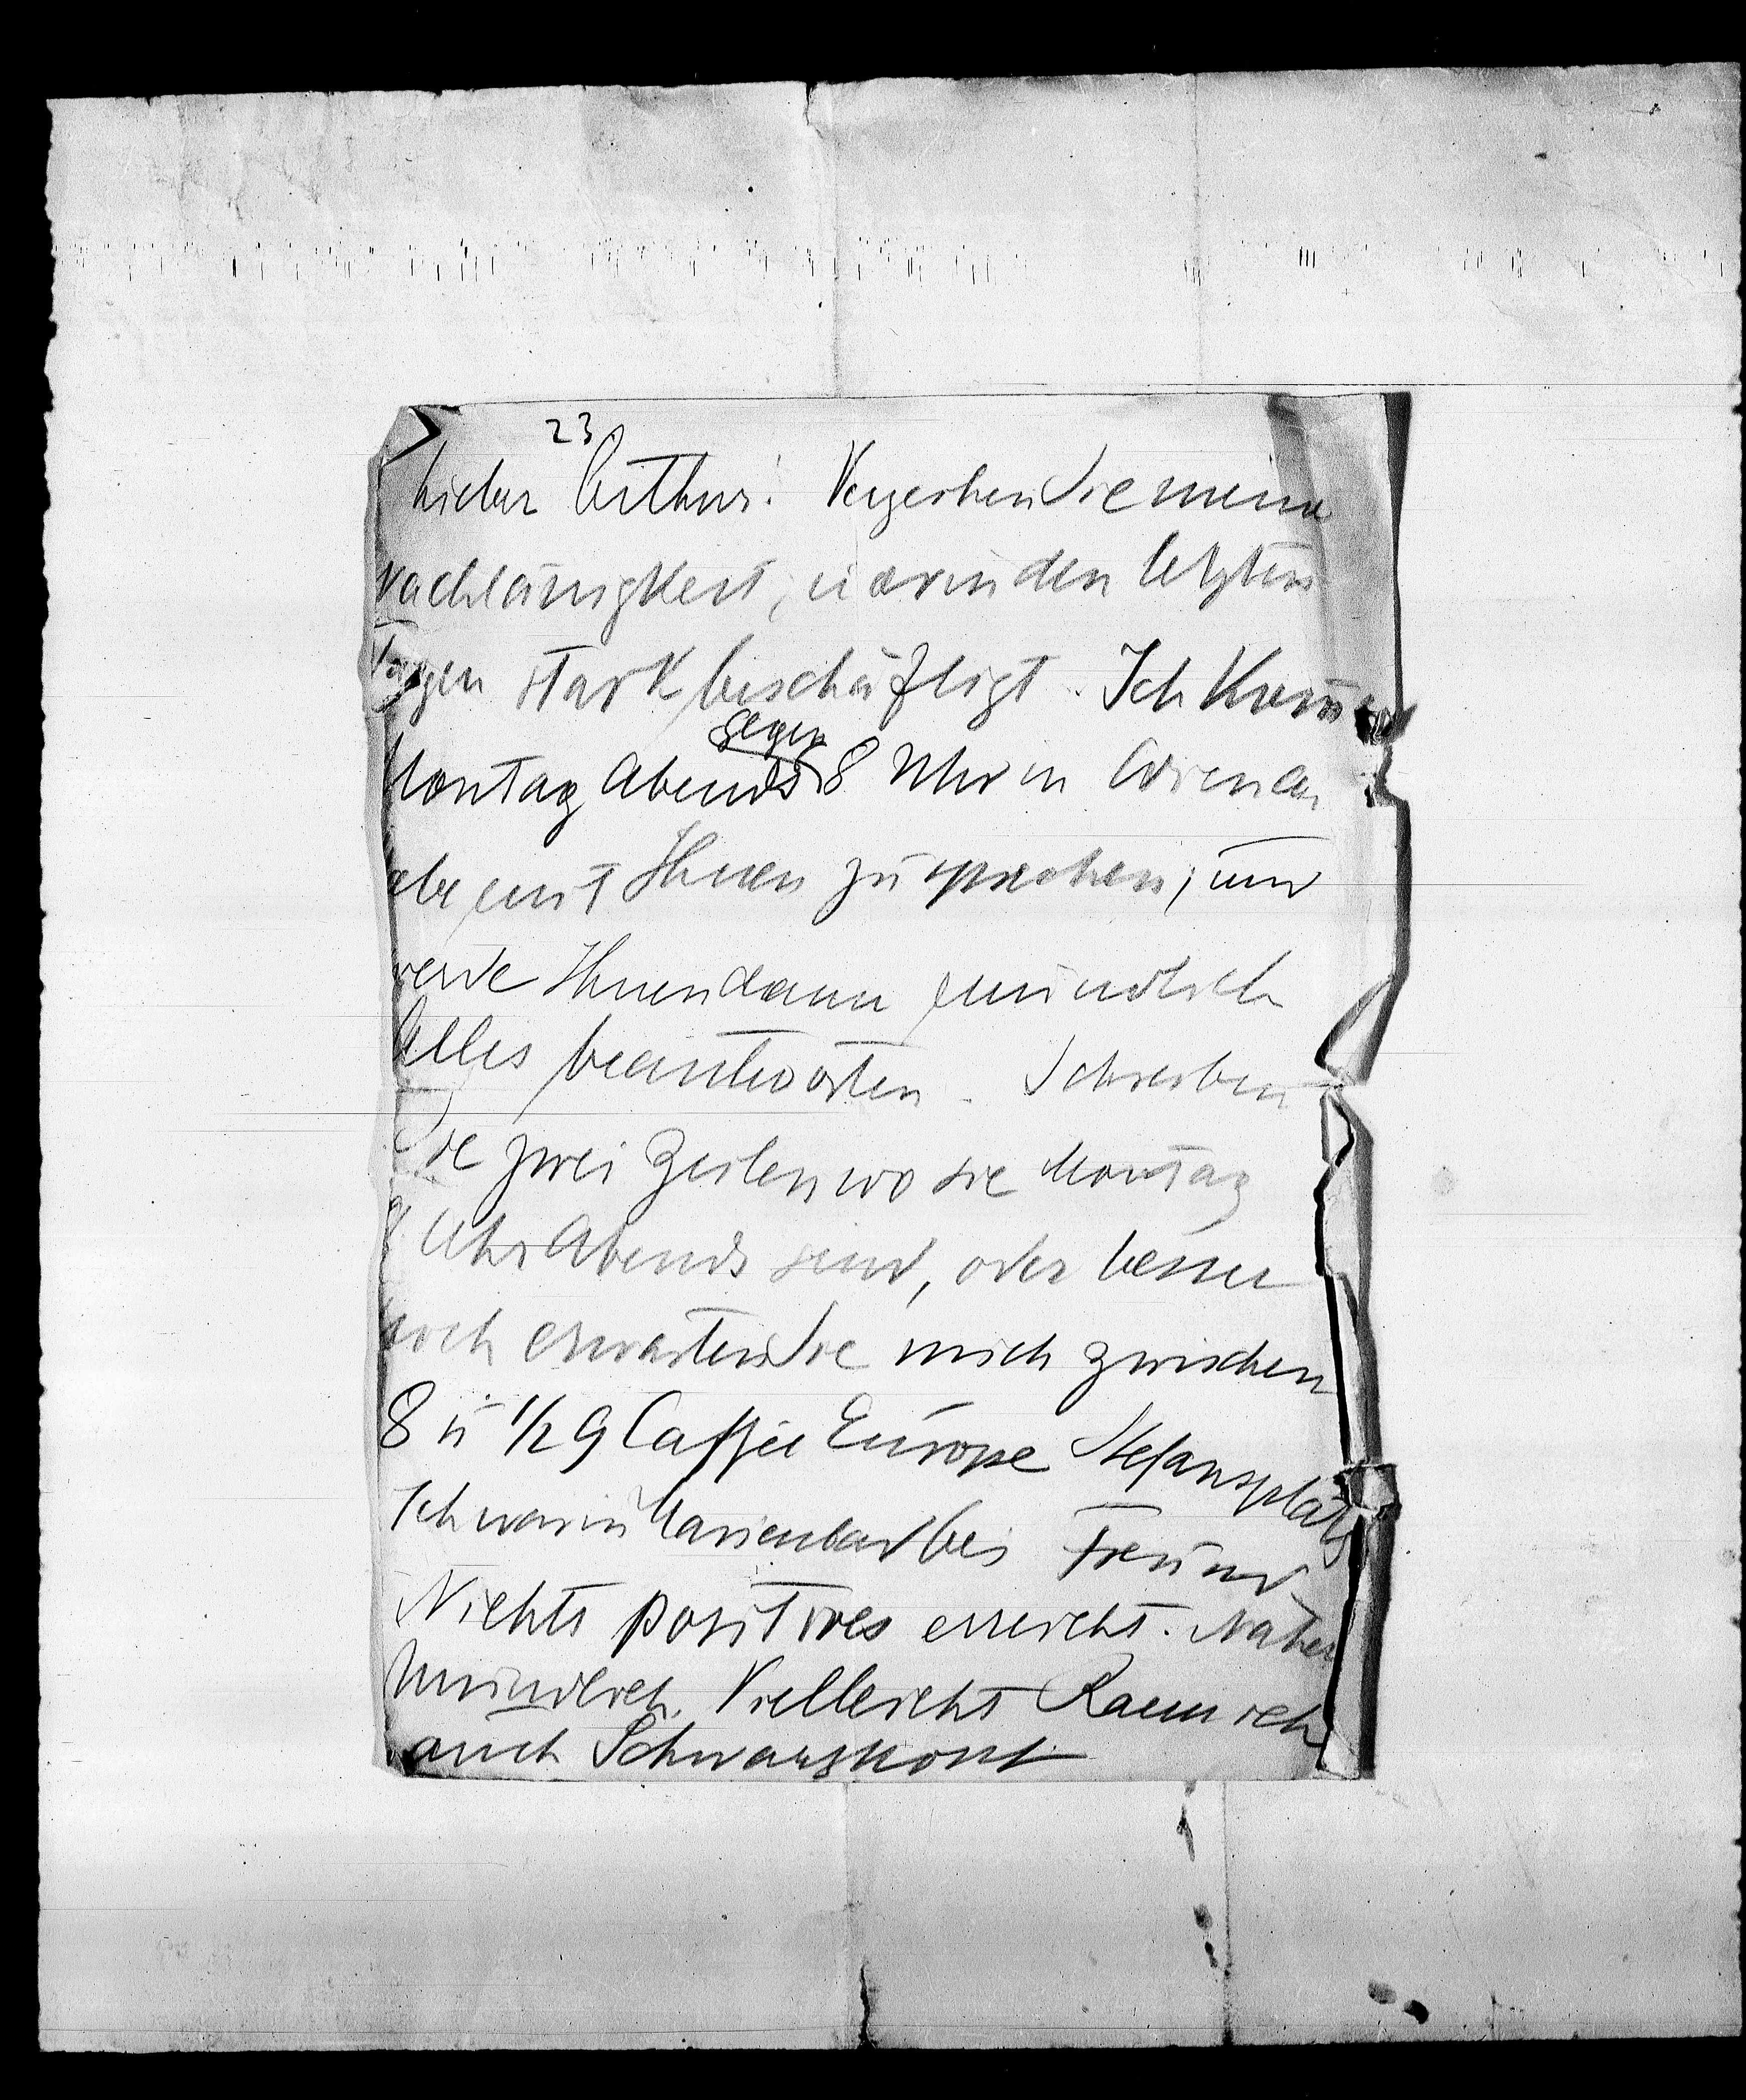 23
Lieber Arthur! Verzeihen Sie meine
Nachlässigkeit, war in den letzten
Tagen stark beschäftigt. Ich komme
gegen
Montag Abends 8 Uhr in Wien an
habe mit Ihnen zu sprechen, und
werde Ihnen dann mündlich
Alles beantworten. Schreiben
Sie zwei Zeilen wo sie Montag
8 Uhr Abends sind, oder besser
noch erwarten Sie mich zwischen
8 u 1/2 9 Caffee Europe Stefansplatz
Ich war in Marienbad bei Freund
Nichts positives erreicht. Näher
Mündlich. Vielleicht kann ich
auch Schwarzkopf